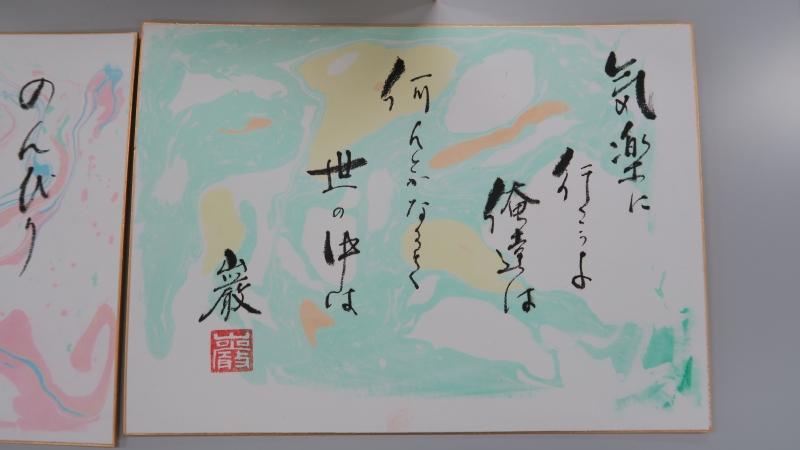 気楽に
行こうよ
俺達は
何んとかなるさ
世の中は
巌
巌
のんびり